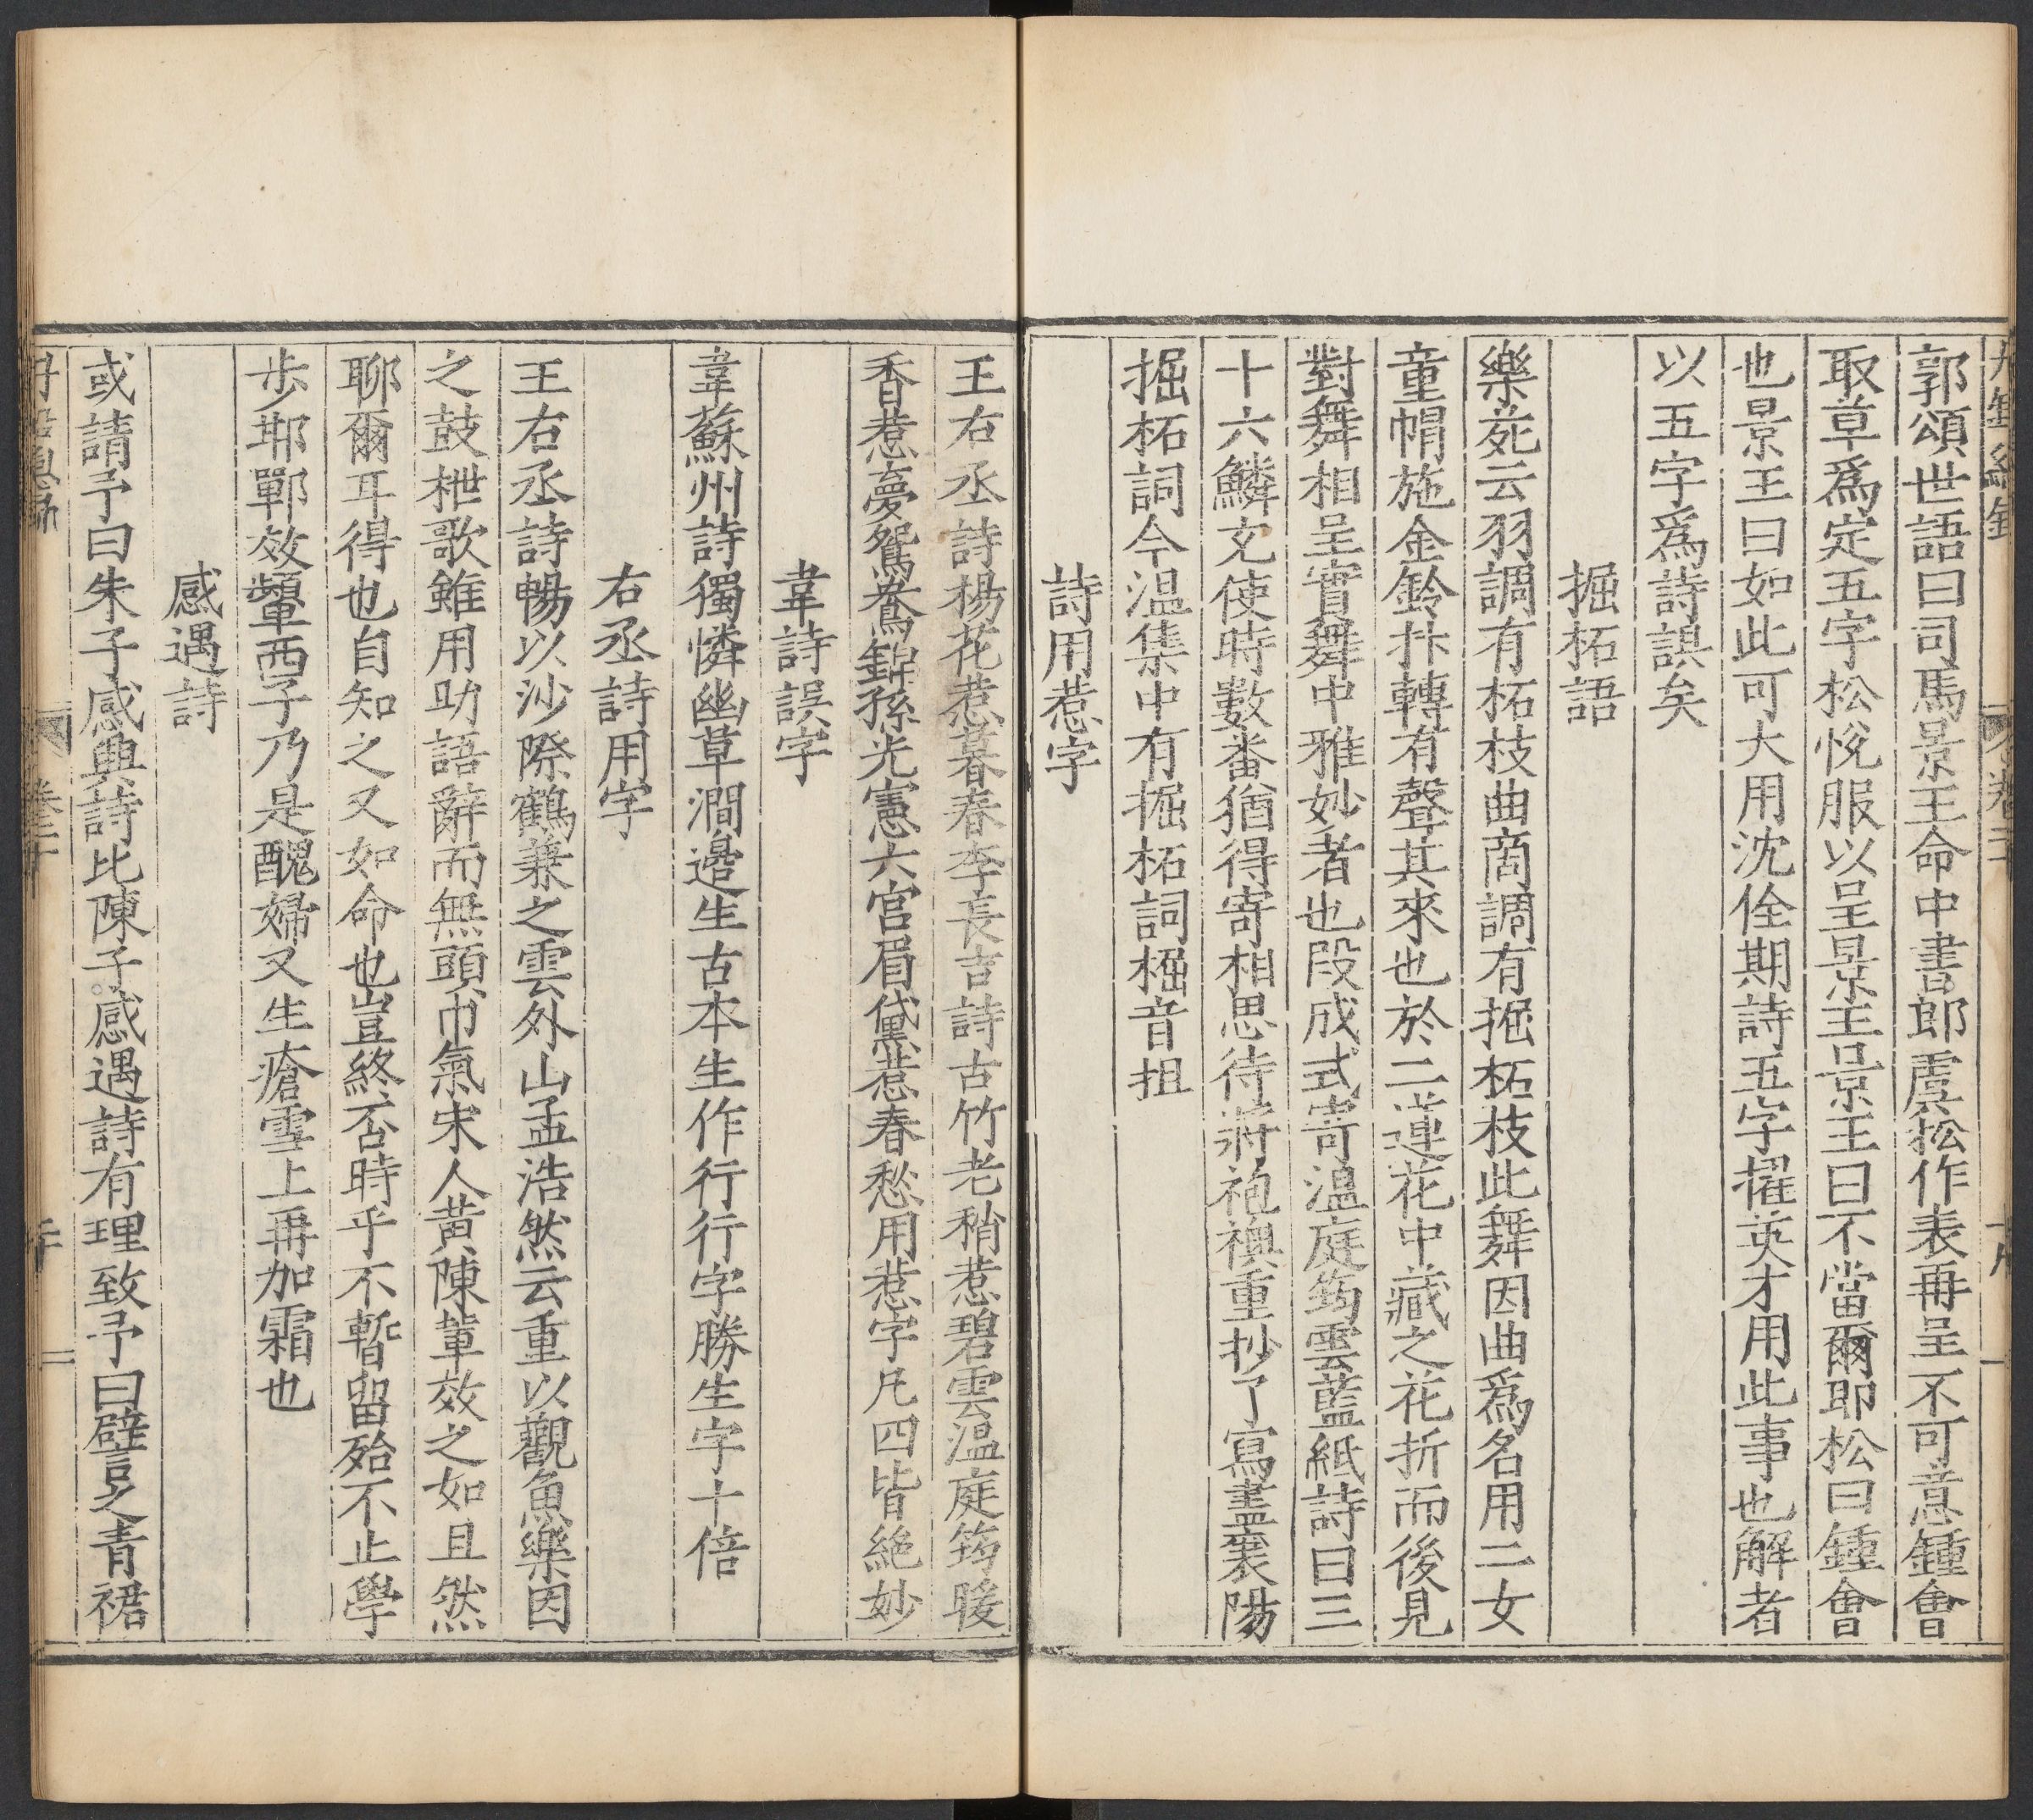 丹鉛總錄
卷二十
郭頒世語曰司馬景王命中書郎虞松作表再呈不可意鍾會
取草爲定五字松悅服以呈景王景王曰不當爾耶松曰鍾會
也景王曰如此可大用沈佺期詩五字擢英才用此事也解者
以五字爲詩誤矣
掘柘語
樂苑云羽調有柘枝曲商調有掘柘枝此舞因曲爲名用二女
童帽施金鈴抃轉有聲其來也於二蓮花中藏之花折而後見
對舞相呈實舞中雅妙者也段成式寄溫庭筠雲藍紙詩曰三
十六鱗充使時數番猶得寄相思待將袍襖重抄了寫盡襄陽
掘柘詞今溫集中有掘柘詞掘音掘
詩用惹字
王右丞詩楊花惹暮春李長吉詩古竹老稍惹碧雲溫庭筠暖
香惹夢鴛鴦錦孫光憲六宮眉黛惹春愁用惹字凡四皆絕妙
韋詩誤字
韋蘇州詩獨憐幽草澗邉生古本生作行行字勝生字十倍
右丞詩用字
王右丞詩暢以沙際鶴兼之雲外山孟浩然云重以觀魚樂因
之鼓枻歌雖用助語辭而無頭巾氣宋人黃陳軰效之如且然
聊爾耳得也自知之又如命也豈終否時乎不暫留殆不止學
步邯鄲效顰西子乃是醜婦又生瘡雪上再加霜也
感遇詩
或請予曰朱子感興詩比陳子感遇詩有理致予曰譬之青裙
卷二十
二十
二